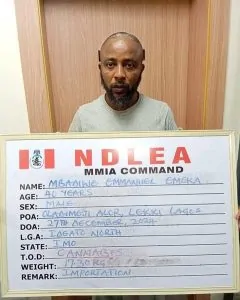 NDLEA
MMIA COMMAND
NAME: MBADIWE EMMANUEL EMEKA
AGE: 41 YEARS
SEX: MALE
POA: OLADIMEJI ALCR, LEKKI LAGOS
DOA: 27TH DECEMBER, 2024
L.G.A: IDEATO NORTH
STATE: IMO
T.O.D: CANNABIS
WEIGHT: 17.30KG
REMARK: IMPORTATION